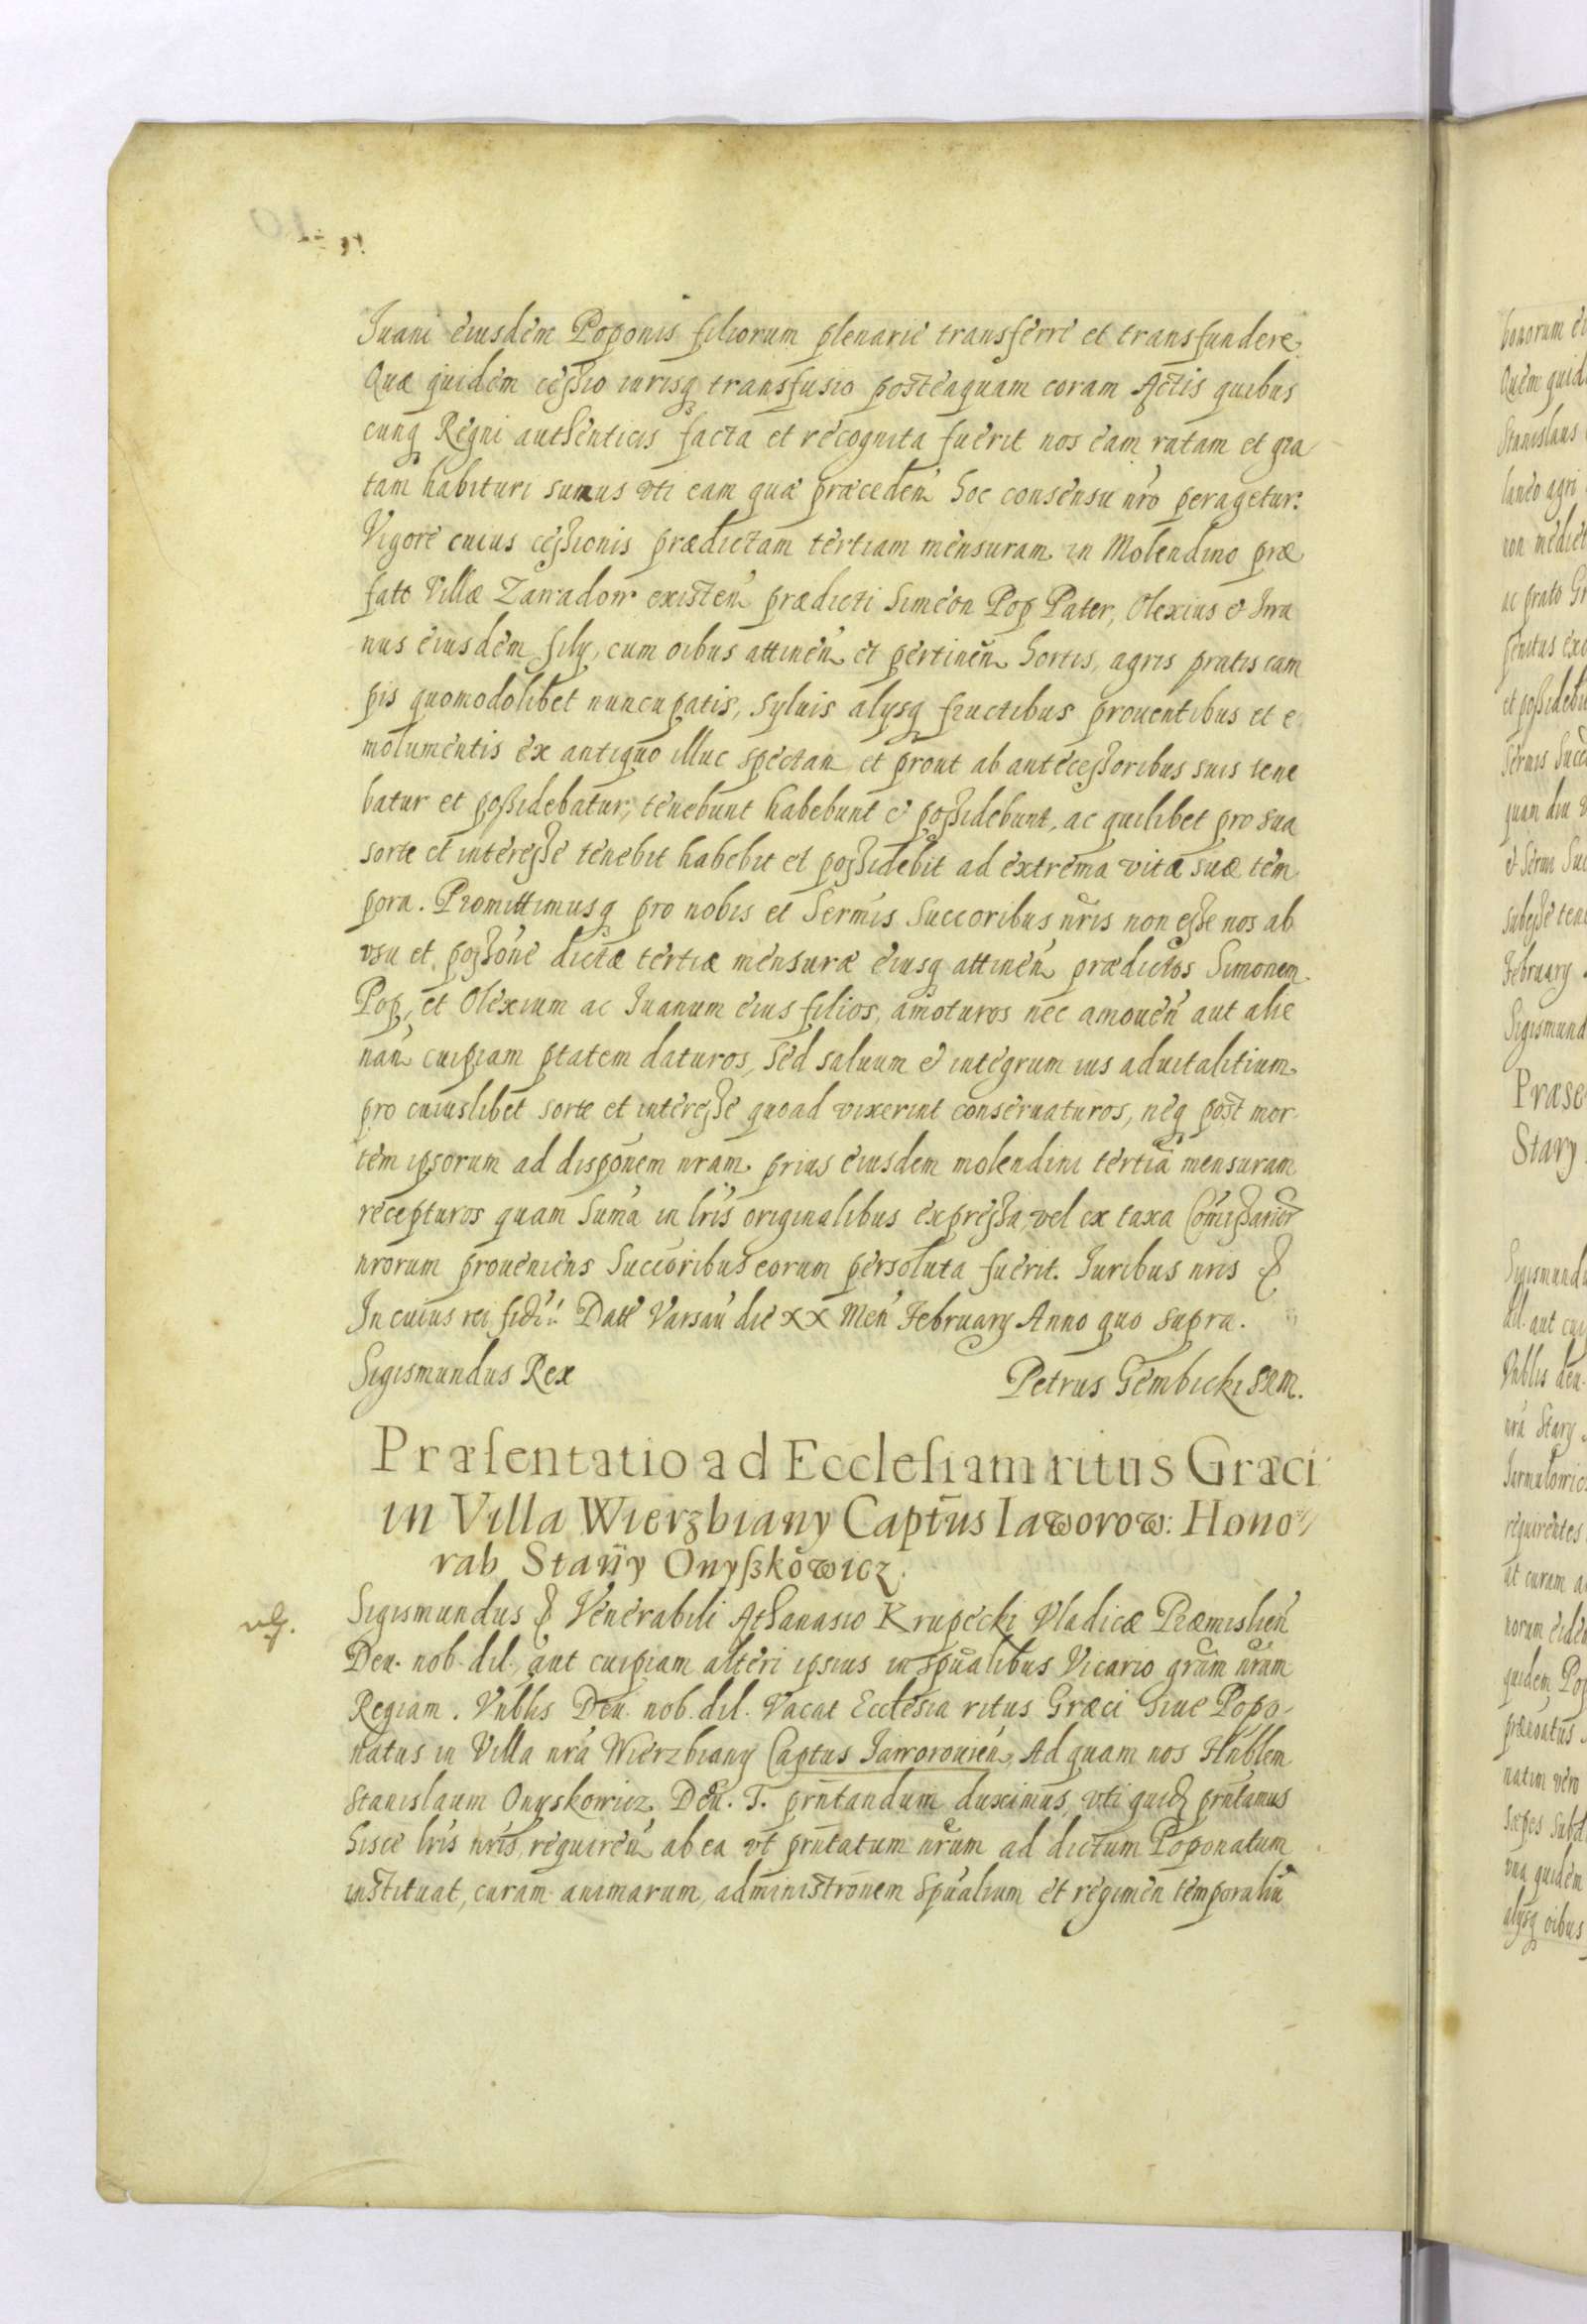 Iuani eiusdem Poponis filiorum plenarie transferre et transfundere.
Quæ quidem ceßio iurisq transfusio posteaquam coram Actis quibus
cunq Regni authenticis facta et recognita fuerit nos eam ratam et gra
tam habituri sumus vti eam quæ præceden hoc consensu nro peragetur.
Vigore cuius ceßionis prædictam tertiam mensuram in Molendino præ
fatæ Villæ Zawadow existen prædicti Simeon Pop Pater, Olexius & Iwa
nus eiusdem filij, cum oibus attinen et pertinen hortis, agris pratis cam
pis quomodolibet nuncupatis, syluis alijsq fructibus prouentibus et e
molumentis ex antiquo illuc spectan et prout ab anteceßoribus suis tene
batur et poßidebatur, tenebunt habebunt & poßidebunt, ac quilibet pro sua
sorte et intereße tenebit habebit et poßidebit ad extrema vitæ suæ tem
pora. Promittimusq pro nobis et Sermis Succoribus nris non eße nos ab
vsu et poßone dictæ tertiæ mensuræ eiusq attinen prædictos Simonem
Pop, et Olexium ac Iuanum eius filios, amoturos nec amouen aut alie
nan cuipiam ptatem daturos, sed saluum & integrum ius aduitalitium
pro cuiuslibet sorte et intereße quoad vixerint conseruaturos, neq post mor
tem ipsorum ad disponem nram prius eiusdem molendini tertia mensuram
recepturos quam Suma in lris originalibus expreßa, vel ex taxa Comißarior
nrorum proueniens Succoribus eorum persoluta fuerit. Iuribus nris &
In cuius rei fid. Datt Varsau die XX Men February Anno quo supra.
Sigismundus Rex Petrus Gembicki SRM.
Præsentatio ad Ecclesiam ritus Græci
in Villa Wierzbiany Captus Iaworow: Hono
rab Stany Onyszkowicz.
Sigismundus & Venerabili Athanasio Krupecki Vladicæ Præmislien
Deu. nob. dil. aut cuipiam alteri ipsius in spualibus Vicario gram nram
Regiam. Vnblis Deu. nob. dil. Vacat Ecclesia ritus Græci siue Popo-
natus in Villa nra Wierzbiany Captus Iaworouien, Ad quam nos Hnblem
Stanislaum Onyskowicz Deu. T. prntandum duximus, vti quidz prntamus
hisce lris nris, requiren ab ea vt prntatum nrum ad dictum Poponatum
instituat, curam animarum, administronem Spualium et regimen temporaliu